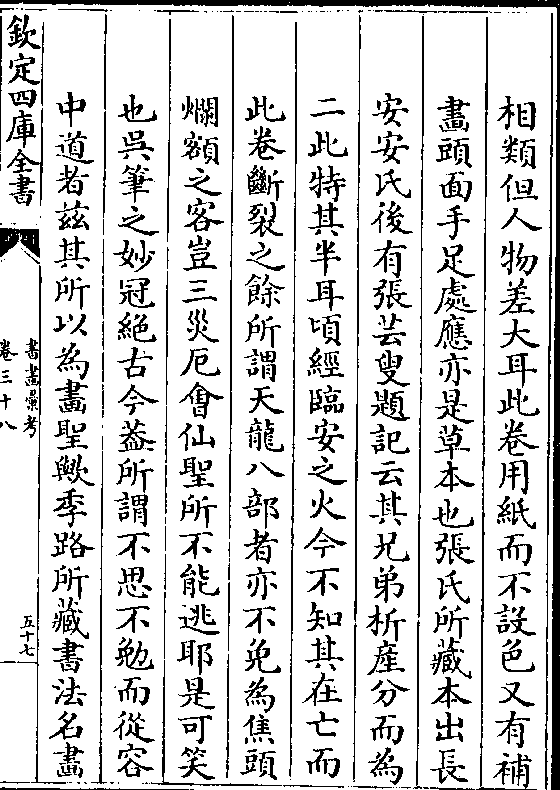 相類但人物差大耳此卷用紙而不設色又有補
畫頭面手足處應亦是草本也張氏所藏本出長
安安氏後有張芸叟題記云其兄弟析產分而為
二此特其半耳頃經臨安之火今不知其在亡而
此卷斷裂之餘所謂天龍八部者亦不免為焦頭
爛額之客豈三災厄會仙聖所不能逃耶是可笑
也吳筆之妙冠絶古今葢所謂不思不勉而從容
中道者兹其所以為畫聖歟季路所藏書法名畫
欽定四庫全書
書畫彙考
卷三十八
五十七